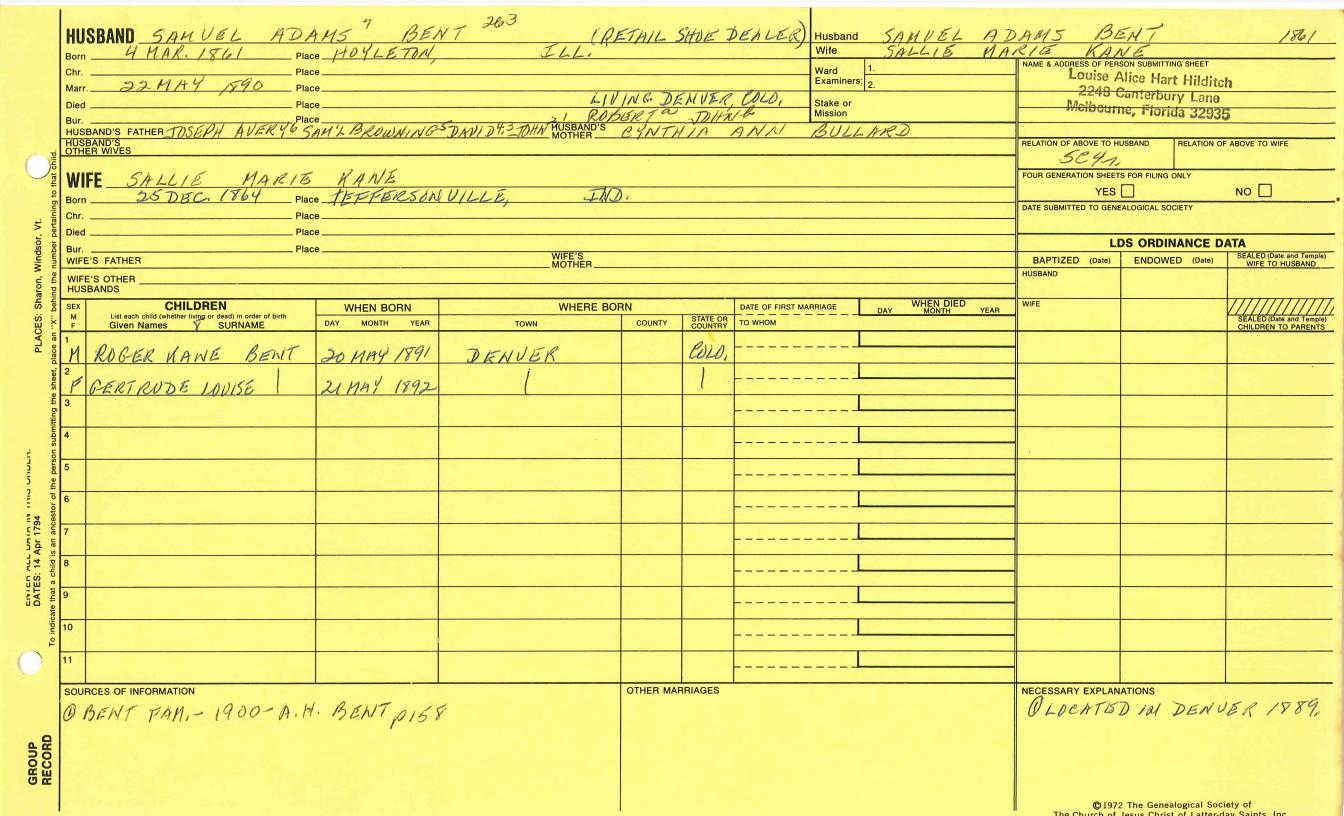 HUSBAND SAMUEL ADAMS 7 BENT 263 (RETAIL SHOE DEALER)
Born 4 MAR. 1861 Place HOYLETON, ILL.
Chr. Place
Marr. 22 MAY 1890 Place
Died Place LIVING DENVER, COLO,
Bur. Place ROBERT JOHN
HUSBAND'S FATHER JOSEPH AVERY 6 SAM'L BROWNING 5 DAVID 4,3 JOHN 2,1 HUSBAND'S MOTHER CYNTHIA ANN BULLARD
HUSBAND'S OTHER WIVES
WIFE SALLIE MARIE KANE
Born 25 DEC. 1864 Place JEFFERSONVILLE, IND.
Chr. Place
Died Place
Bur. Place
WIFE'S FATHER WIFE'S MOTHER
WIFE'S OTHER HUSBANDS
Husband SAMUEL ADAMS BENT 1861
Wife SALLIE MARIE KANE
Ward Examiners: 1. 2.
Stake or Mission
NAME & ADDRESS OF PERSON SUBMITTING SHEET
Louise Alice Hart Hilditch
2248 Canterbury Lane
Melbourne, Florida 32935
RELATION OF ABOVE TO HUSBAND RELATION OF ABOVE TO WIFE
5C4r
FOUR GENERATION SHEETS FOR FILING ONLY
YES NO
DATE SUBMITTED TO GENEALOGICAL SOCIETY
LDS ORDINANCE DATA
BAPTIZED (Date) ENDOWED (Date) SEALED (Date and Temple) WIFE TO HUSBAND
HUSBAND
WIFE
SEALED (Date and Temple) CHILDREN TO PARENTS
SEX M F
CHILDREN
List each child (whether living or dead) in order of birth
Given Names SURNAME
WHEN BORN
DAY MONTH YEAR
WHERE BORN
TOWN COUNTY STATE OR COUNTRY
DATE OF FIRST MARRIAGE
TO WHOM
WHEN DIED
DAY MONTH YEAR
1 M ROGER KANE BENT 20 MAY 1891 DENVER COLO,
2 F GERTRUDE LOUISE | 21 MAY 1892 | |
3
4
5
6
7
8
9
10
11
SOURCES OF INFORMATION
① BENT FAM. - 1900 - A.H. BENT p158
OTHER MARRIAGES
NECESSARY EXPLANATIONS
① LOCATED IN DENVER 1889.
©1972 The Genealogical Society of
The Church of Jesus Christ of Latter-day Saints, Inc.
PLACES: Sharon, Windsor, Vt.
ENTER ALL DATA IN THIS ORDER:
DATES: 14 Apr 1794
To indicate that a child is an ancestor of the person submitting the sheet, place an "X" behind the number pertaining to that child.
GROUP RECORD